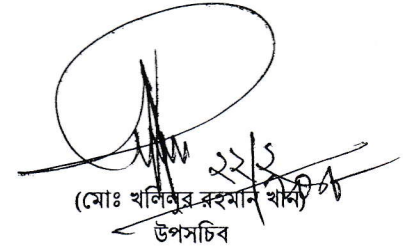 ২২/২
(মোঃ খলিলুর রহমান খান)
উপসচিব